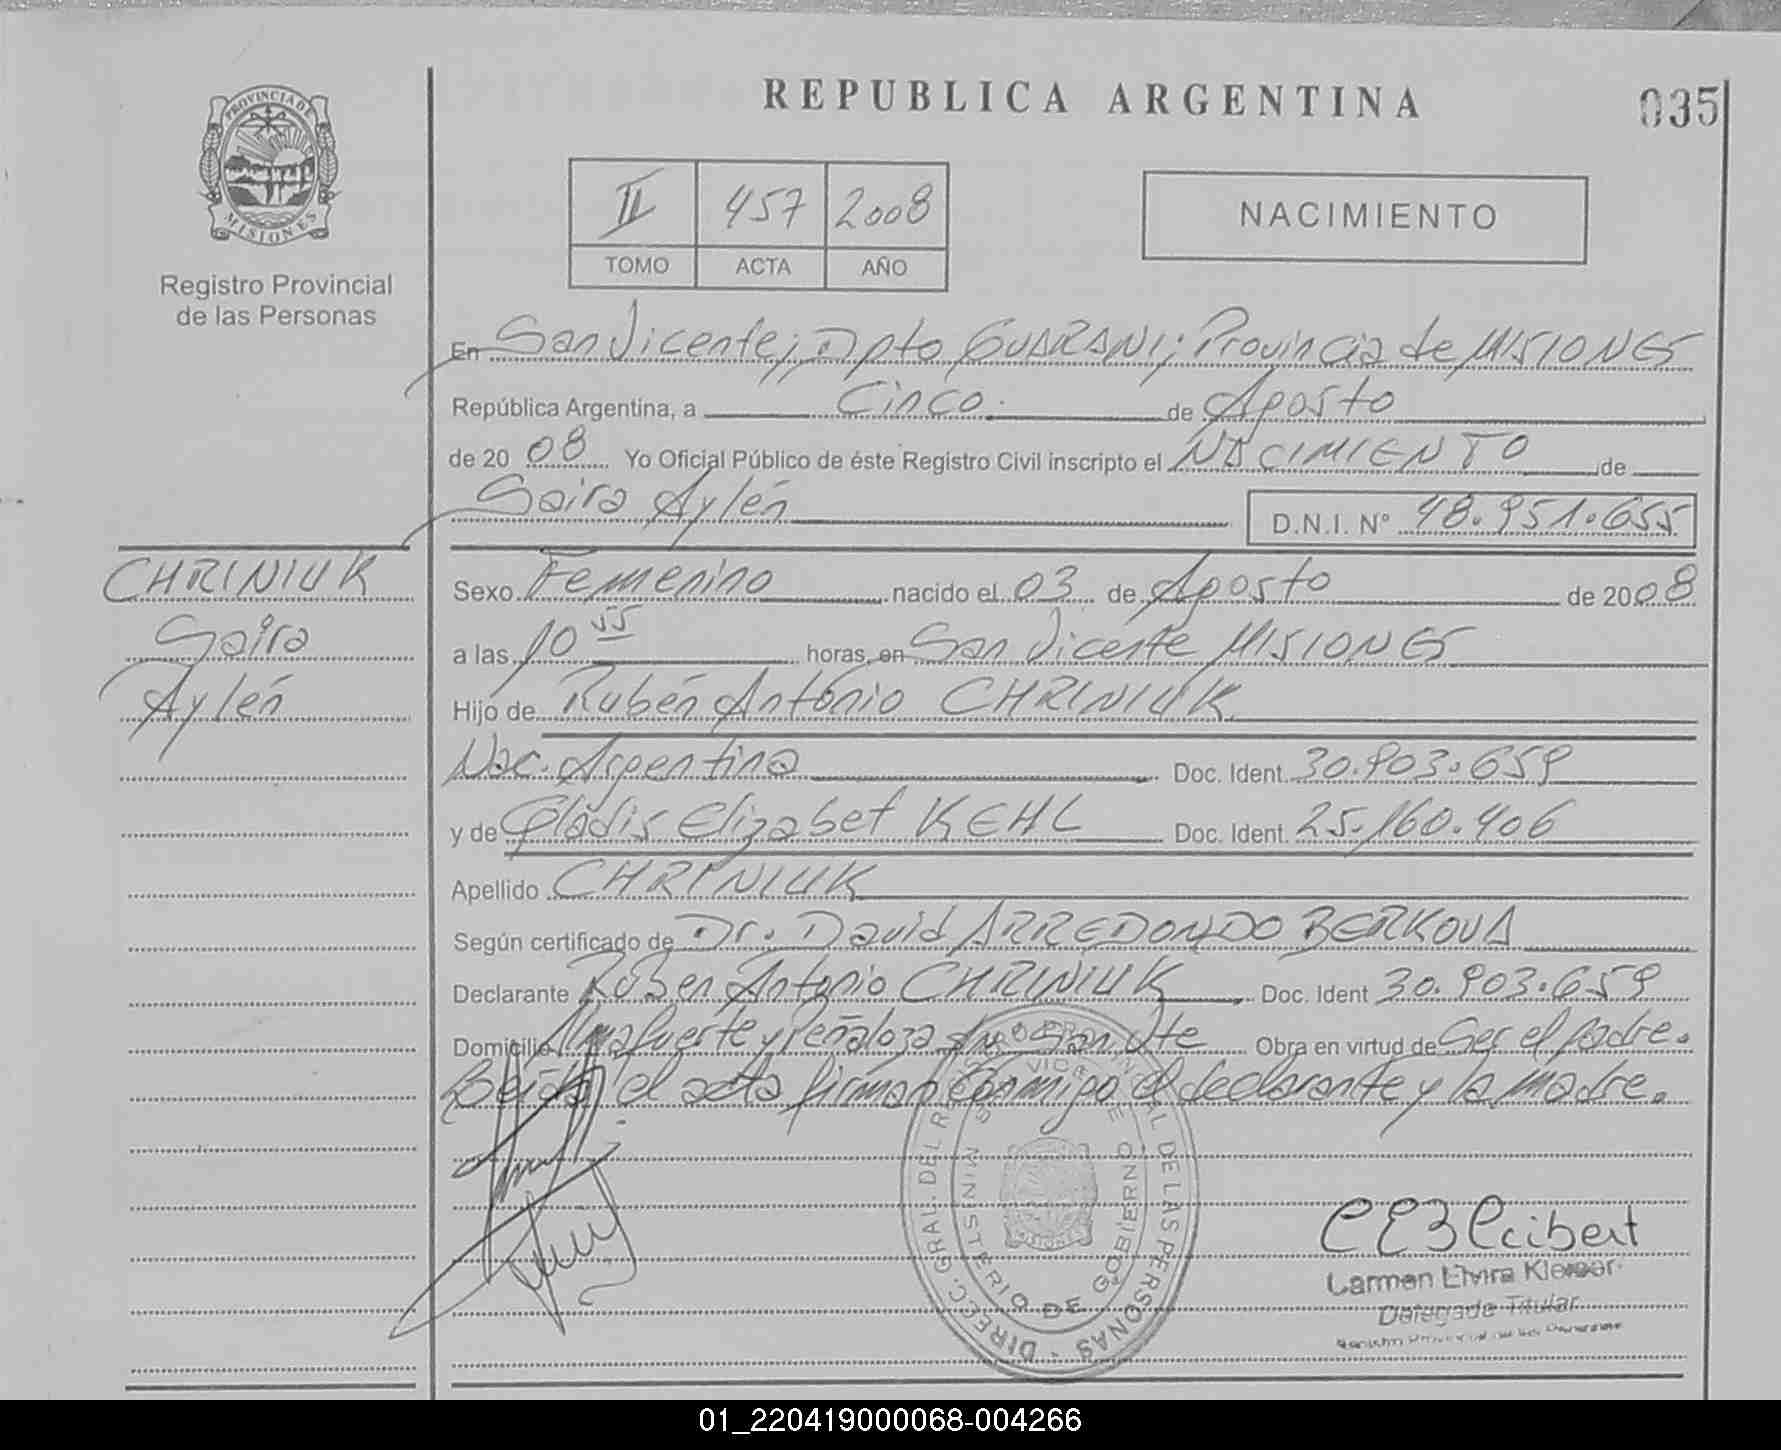 REPUBLICA ARGENTINA
035
PROVINCIA DE
MISIONES
Registro Provincial
de las Personas
II 457 2008
TOMO ACTA AÑO
NACIMIENTO
En San Vicente; Dpto GUARANI; Provincia de MISIONES
República Argentina, a Cinco. de Agosto
de 20 08 Yo Oficial Público de éste Registro Civil inscripto el NACIMIENTO de
Saira Aylén D.N.I. Nº 48.951.655
CHRINIUK
Saira
Aylén
Sexo Femenino nacido el 03 de Agosto de 2008
a las 10 55 horas, en San Vicente MISIONES
Hijo de Rubén Antonio CHRINIUK
Nac. Argentina Doc. Ident. 30.903.659
y de Gladis Elizabet KEHL Doc. Ident. 25.160.406
Apellido CHRINIUK
Según certificado de Dr. David ARREDONDO BERKOVA
Declarante Rubén Antonio CHRINIUK Doc. Ident 30.903.659
Domicilio Almafuerte y Peñaloza San Vte Obra en virtud de Ser el padre.
Leída el acta firman conmigo el declarante y la madre.
DIREC. GRAL. DEL REG. PROVINCIAL DE LAS PERSONAS
MINISTERIO DE GOBIERNO
MISIONES
Carmen Elvira
Delegada Titular
Registro Provincial de las Personas
01_220419000068-004266